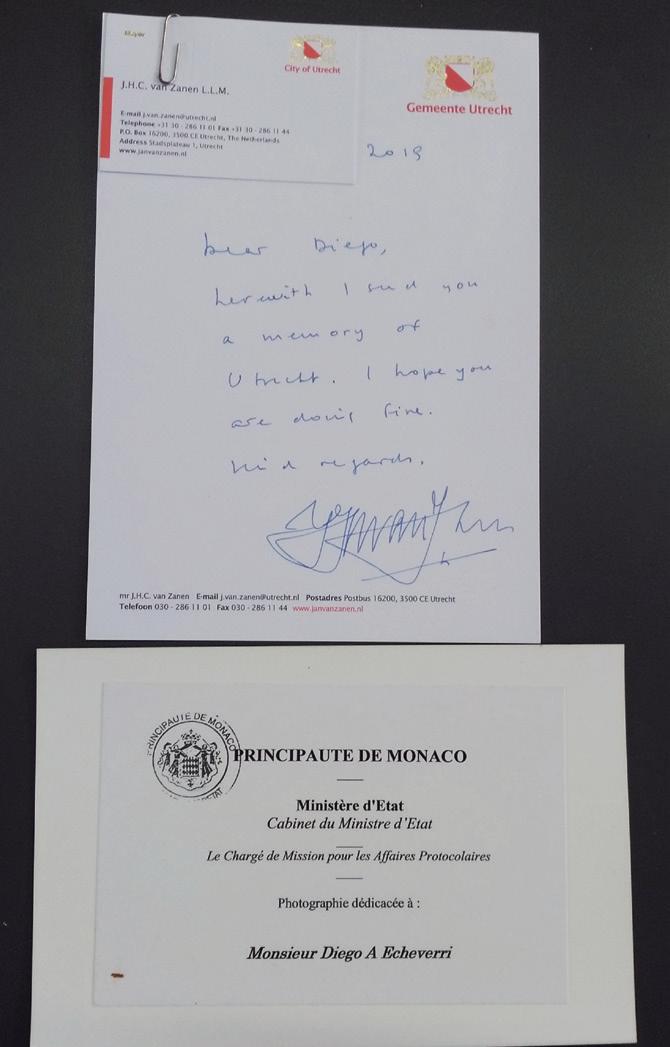 Mayor
City of Utrecht
J.H.C. van Zanen L.L.M.
E-mail j.van.zanen@utrecht.nl
Telephone +31 30 - 286 11 01 Fax +31 30 - 286 11 44
P.O. Box 16200, 3500 CE Utrecht, The Netherlands
Address Stadsplateau 1, Utrecht
www.janvanzanen.nl
Gemeente Utrecht
2019
Dear Diego,
herewith I send you
a memory of
Utrecht. I hope you
are doing fine.
Kind regards,
mr J.H.C. van Zanen E-mail j.van.zanen@utrecht.nl Postadres Postbus 16200, 3500 CE Utrecht
Telefoon 030 - 286 11 01 Fax 030 - 286 11 44 www.janvanzanen.nl
PRINCIPAUTE DE MONACO
PRINCIPAUTE DE MONACO
Ministère d'Etat
Cabinet du Ministre d'Etat
Le Chargé de Mission pour les Affaires Protocolaires
Photographie dédicacée à :
Monsieur Diego A Echeverri